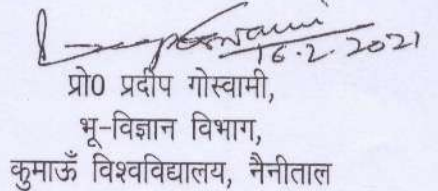 16.2.2021
प्रो0 प्रदीप गोस्वामी,
भू-विज्ञान विभाग,
कुमाऊँ विश्वविद्यालय, नैनीताल